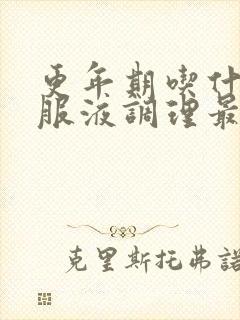 更年期喫什
服液調理最
克里斯托弗諾